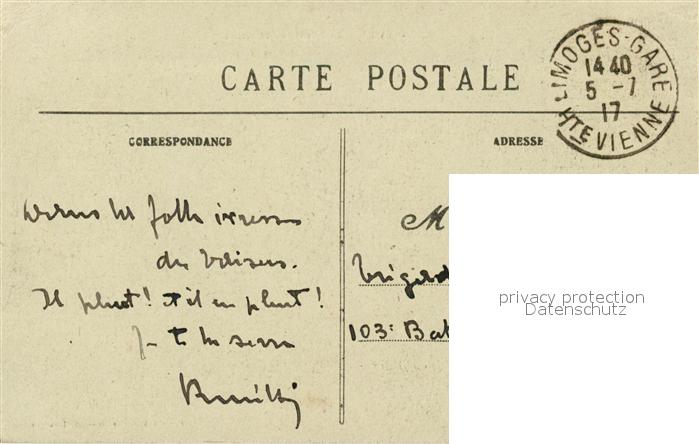 CARTE POSTALE
LIMOGES-GARE
1440
5 -7
17
HTE VIENNE
CORRESPONDANCE
ADRESSE
folle ivresse
des baisers.
Il pleut! et il en pleut!
Je te la serre
M
103e Bat
privacy protection
Datenschutz